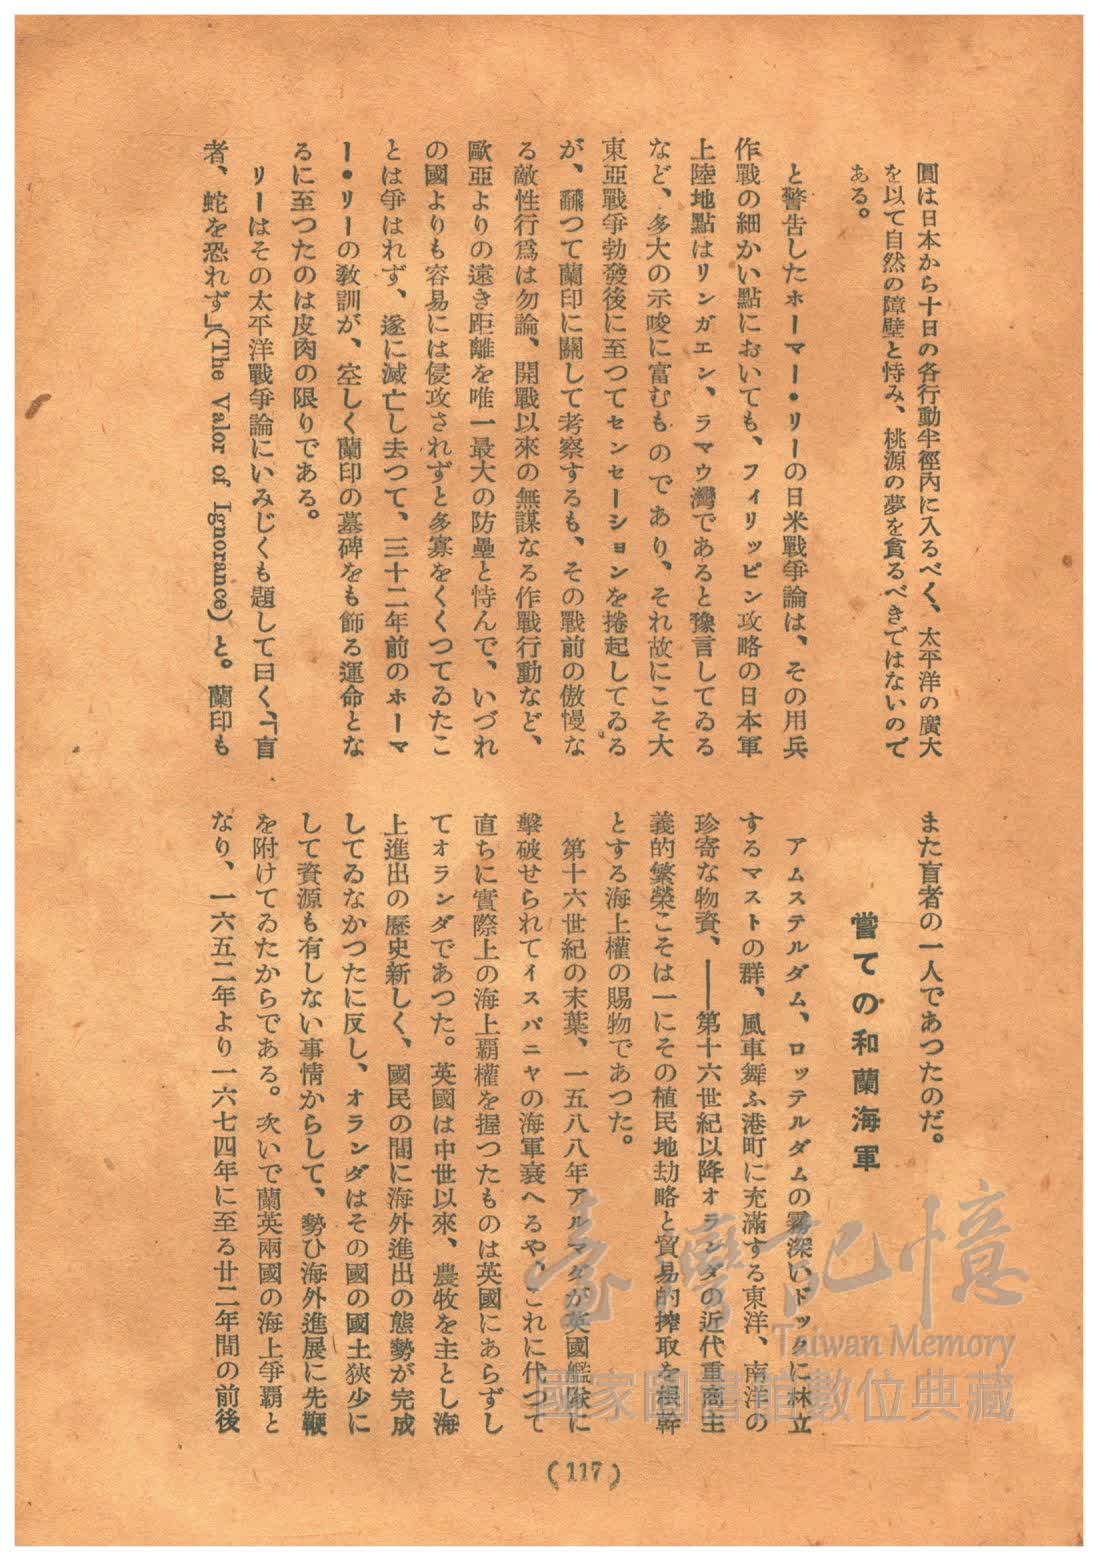 圓は日本から十日の各行動半徑內に入るべく、太平洋の廣大
を以て自然の障壁と恃み、桃源の夢を貪るべきではないので
ある。
と警告したホーマー・リーの日米戰爭論は、その用兵
作戰の細かい點においても、フィリッピン攻略の日本軍
上陸地點はリンガエン、ラマウ灣であると豫言してゐる
など、多大の示唆に富むものであり、それ故にこそ大
東亞戰爭勃發後に至つてセンセーションを捲起してゐる
が、飜つて蘭印に關して考察するも、その戰前の傲慢な
る敵性行爲は勿論、開戰以來の無謀なる作戰行動など、
歐亞よりの遠き距離を唯一最大の防壘と恃んで、いづれ
の國よりも容易には侵攻されずと多寡をくくつてゐたこ
とは爭はれず、遂に滅亡し去つて、三十二年前のホーマ
ー・リーの敎訓が、空しく蘭印の墓碑をも飾る運命とな
るに至つたのは皮肉の限りである。
リーはその太平洋戰爭論にいみじくも題して曰く、「盲
者、蛇を恐れず」(The Valor of Ignorance) と。蘭印も
また盲者の一人であつたのだ。
嘗ての和蘭海軍
アムステルダム、ロッテルダムの霧深いドックに林立
するマストの群、風車舞ふ港町に充滿する東洋、南洋の
珍寄な物資、——第十六世紀以降オランダの近代重商主
義的繁榮こそは一にその植民地劫略と貿易的搾取を根幹
とする海上權の賜物であつた。
第十六世紀の末葉、一五八八年アルマダが英國艦隊に
擊破せられてイスパニヤの海軍衰へるや、これに代つて
直ちに實際上の海上覇權を握つたものは英國にあらずし
てオランダであつた。英國は中世以來、農牧を主とし海
上進出の歷史新しく、國民の間に海外進出の態勢が完成
してゐなかつたに反し、オランダはその國の國土狹少に
して資源も有しない事情からして、勢ひ海外進展に先鞭
を附けてゐたからである。次いで蘭英兩國の海上爭覇と
なり、一六五二年より一六七四年に至る廿二年間の前後
(117)
臺灣記憶
Taiwan Memory
國家圖書館數位典藏